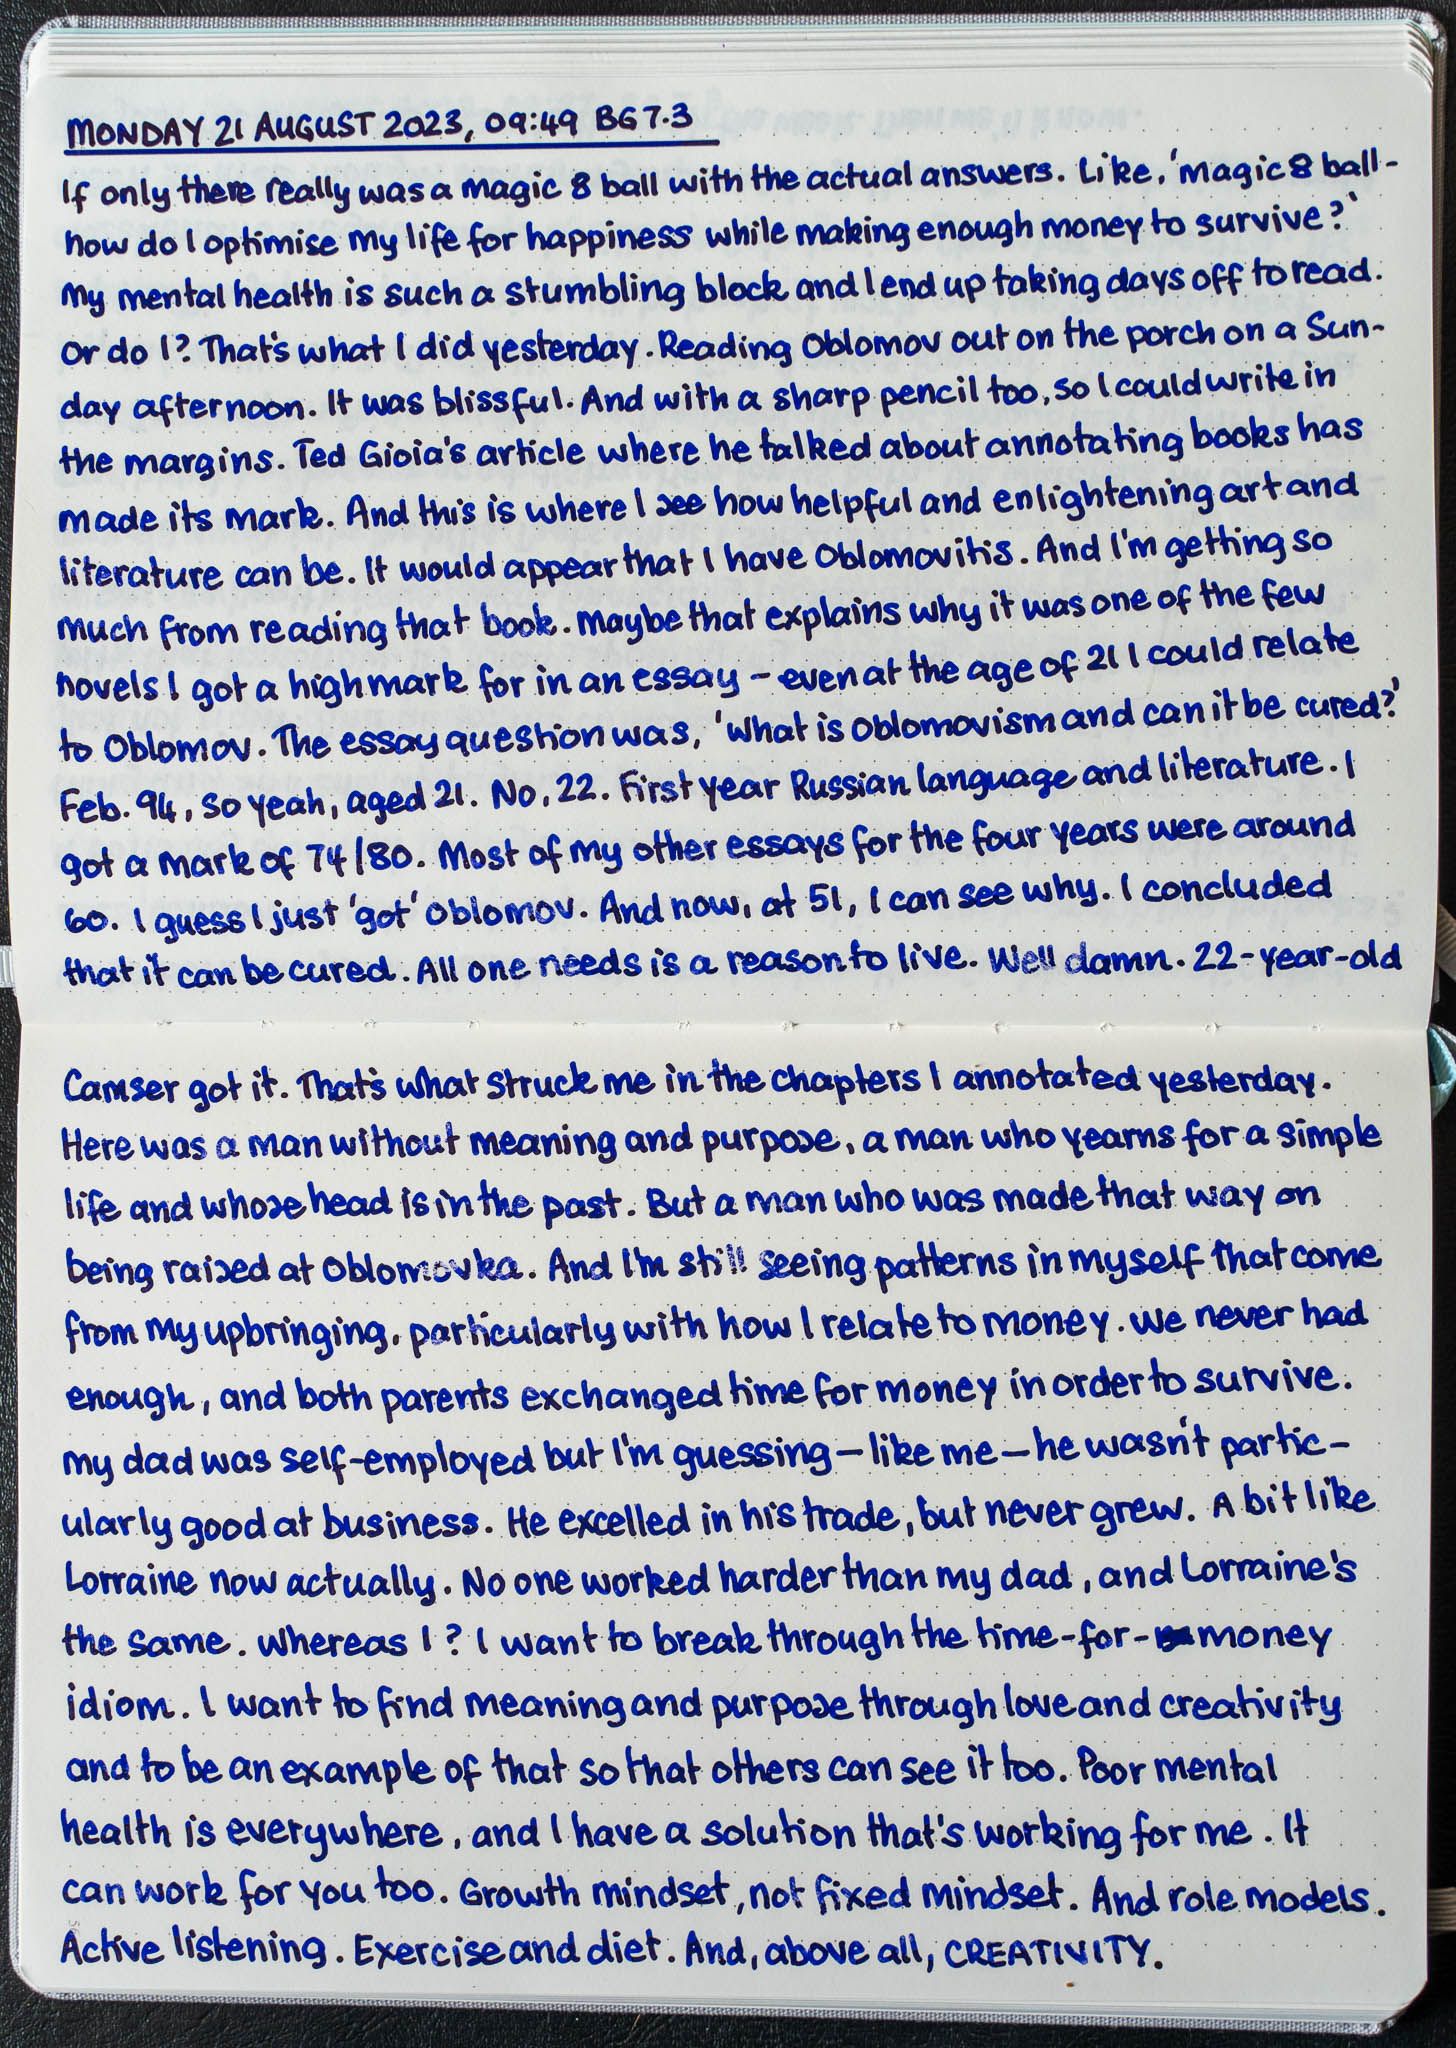 MONDAY 21 AUGUST 2023, 09:49 BG 7.3
If only there really was a magic 8 ball with the actual answers. Like, 'Magic 8 ball -
how do I optimise my life for happiness while making enough money to survive?'
My mental health is such a stumbling block and I end up taking days off to read.
Or do I? That's what I did yesterday. Reading Oblomov out on the porch on a Sun-
day afternoon. It was blissful. And with a sharp pencil too, so I could write in
the margins. Ted Gioia's article where he talked about annotating books has
made its mark. And this is where I see how helpful and enlightening art and
literature can be. It would appear that I have Oblomovitis. And I'm getting so
much from reading that book. Maybe that explains why it was one of the few
novels I got a high mark for in an essay - even at the age of 21 I could relate
to Oblomov. The essay question was, 'What is Oblomovism and can it be cured?'
Feb. 94, so yeah, aged 21. No, 22. First year Russian language and literature. I
got a mark of 74/80. Most of my other essays for the four years were around
60. I guess I just 'got' Oblomov. And now, at 51, I can see why. I concluded
that it can be cured. All one needs is a reason to live. Well damn. 22-year-old
Camser got it. That's what struck me in the chapters I annotated yesterday.
Here was a man without meaning and purpose, a man who yearns for a simple
life and whose head is in the past. But a man who was made that way on
being raised at Oblomovka. And I'm still seeing patterns in myself that come
from my upbringing, particularly with how I relate to money. We never had
enough, and both parents exchanged time for money in order to survive.
My dad was self-employed but I'm guessing – like me – he wasn't partic-
ularly good at business. He excelled in his trade, but never grew. A bit like
Lorraine now actually. No one worked harder than my dad, and Lorraine's
the same. Whereas I? I want to break through the time-for-money
idiom. I want to find meaning and purpose through love and creativity
and to be an example of that so that others can see it too. Poor mental
health is everywhere, and I have a solution that's working for me. It
can work for you too. Growth mindset, not fixed mindset. And role models.
Active listening. Exercise and diet. And, above all, CREATIVITY.